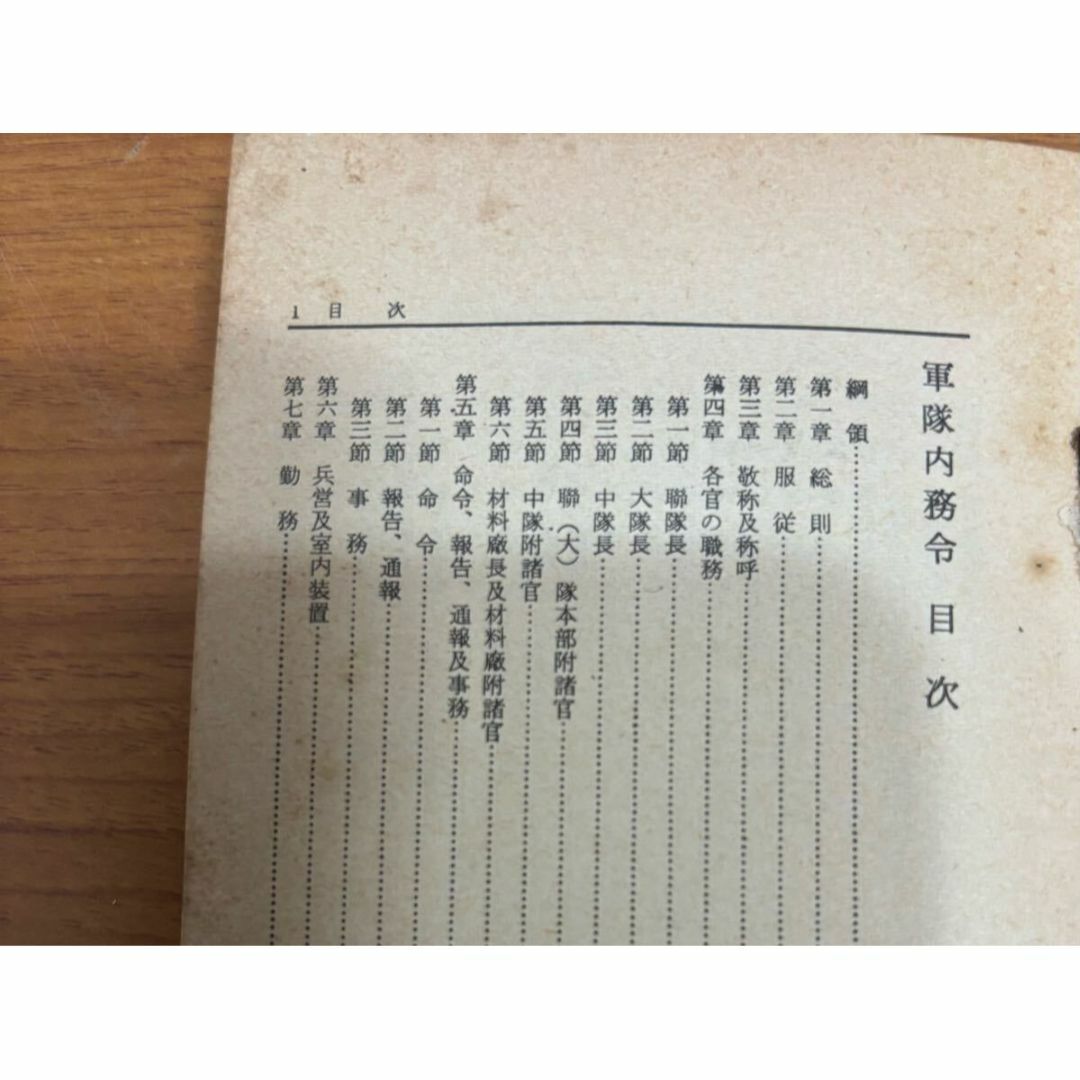 軍隊内務令 目次
綱領
第一章 総則
第二章 服従
第三章 敬称及称呼
第四章 各官の職務
第一節 聯隊長
第二節 大隊長
第三節 中隊長
第四節 聯(大)隊本部附諸官
第五節 中隊附諸官
第六節 材料廠長及材料廠附諸官
第五章 命令、報告、通報及事務
第一節 命令
第二節 報告、通報
第三節 事務
第六章 兵営及室内装置
第七章 勤務
1 目次